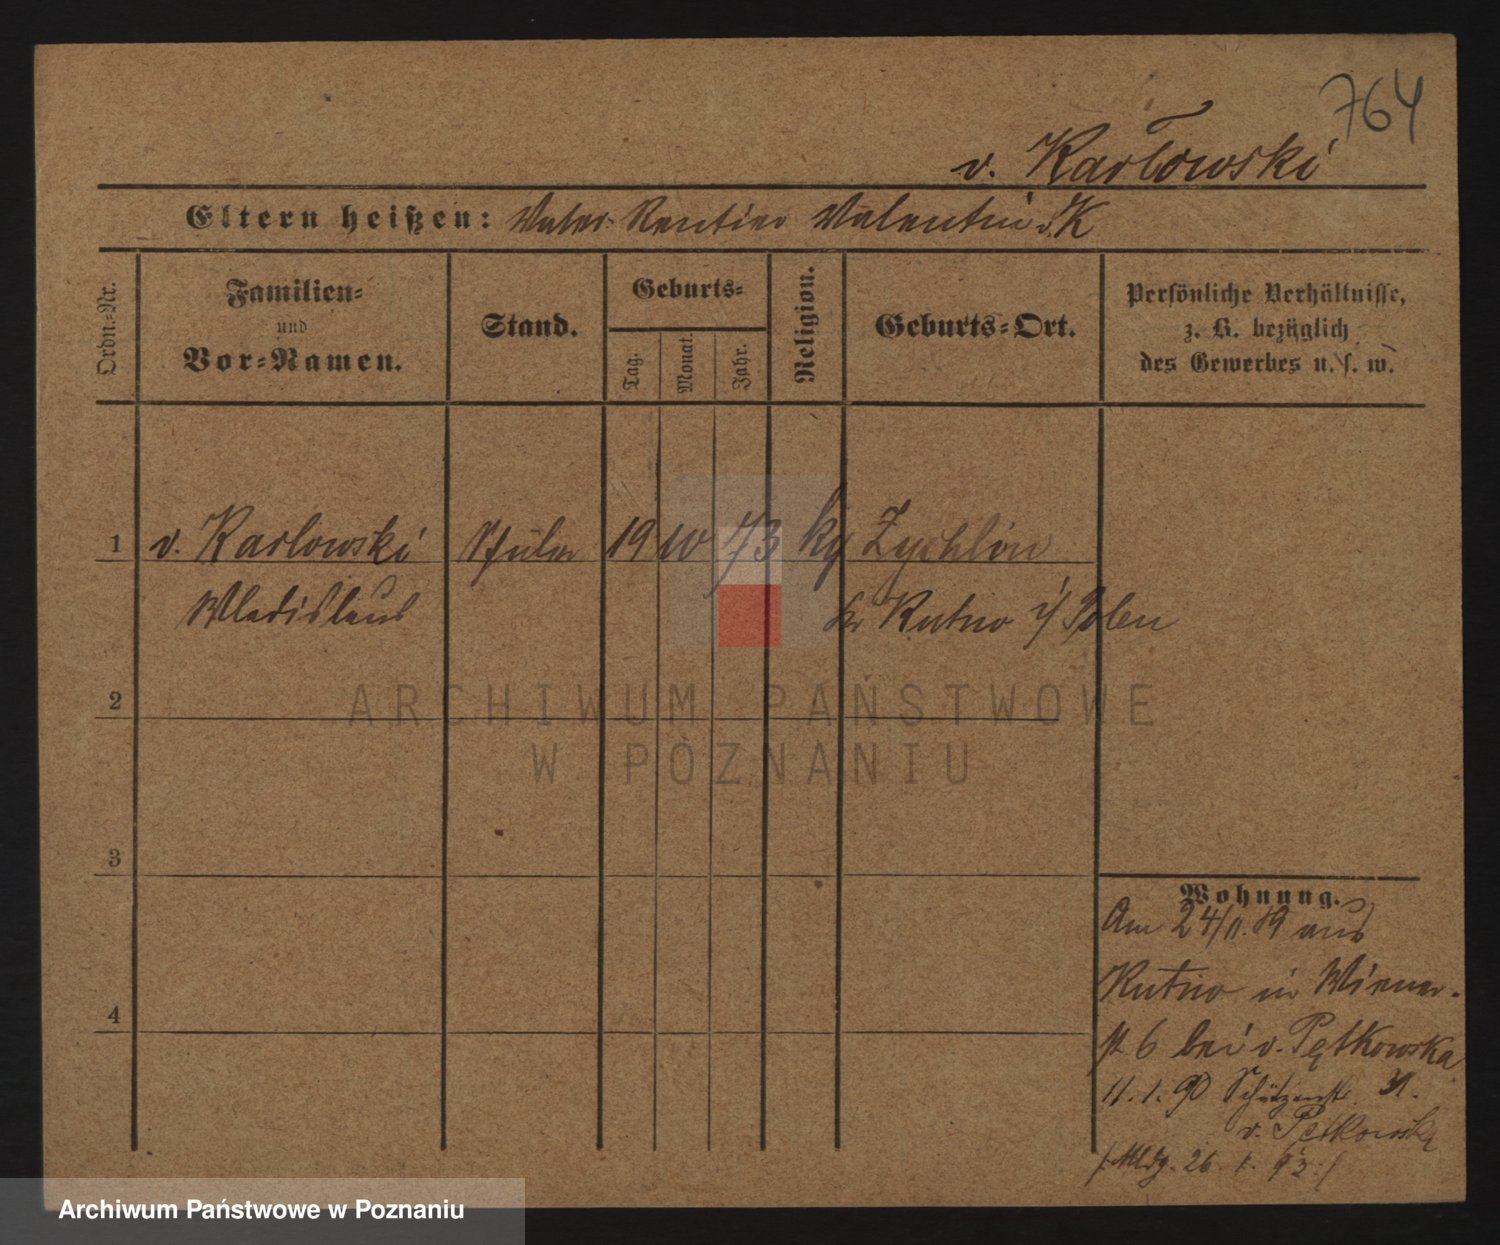 764
v. Karłowski
Eltern heißen: Vater Rentier Valentin v. K
Ordn.-Nr.
Familien-
und
Vor-Namen.
Stand.
Geburts-
Tag.
Monat.
Jahr.
Religion.
Geburts-Ort.
Persönliche Verhältnisse,
z. B. bezüglich
des Gewerbes u. s. w.
1 v. Karlowski Schüler 19 10 73 kg Zychlin
Wladislaus Kr Kutno i/ Polen
2
3
4
Wohnung.
Am 24/11. 89 aus
Kutno in Wiener-
st 6 bei v. Pętkowska
11. 1. 90 Schützenstr. 31.
v. Pętkowska
/: Mldg. 26. 1. 93 :/
ARCHIWUM PAŃSTWOWE
W POZNANIU
Archiwum Państwowe w Poznaniu